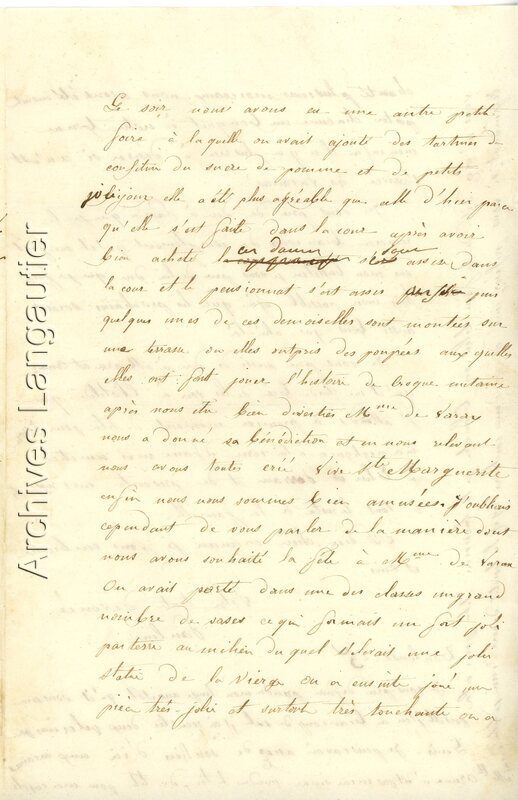 Le soir nous avons eu une autre petite
foire à laquelle on avait ajouté des tartines de
confiture du sucre de pomme et de petits
joujoux elle a été plus agréable que celle d'hier parce
qu'elle s'est faite dans la cour après avoir
bien acheté ces dames se sont assises dans
la cour et le pensionnat s'est assis puis
quelques unes de ces demoiselles sont montées sur
une terrasse ou elles ont pris des poupées aux quelles
elles ont fait jouer l'histoire de Croque mitaine
après nous être bien diverties Mme de Varax
nous a donné sa bénédiction et en nous relevant
nous avons toutes crié Vive Ste Marguerite
enfin nous nous sommes bien amusées. J'oubliais
cependant de vous parler de la manière dont
nous avons souhaité la fête à Mme de Varax
On avait porté dans une des classes un grand
nombre de vases ce qui formais un fort joli
parterre au milieu du quel s'élevait une jolie
statue de la Vierge on a ensuite joué une
pièce très jolie et surtout très touchante on a
Archives Langautier